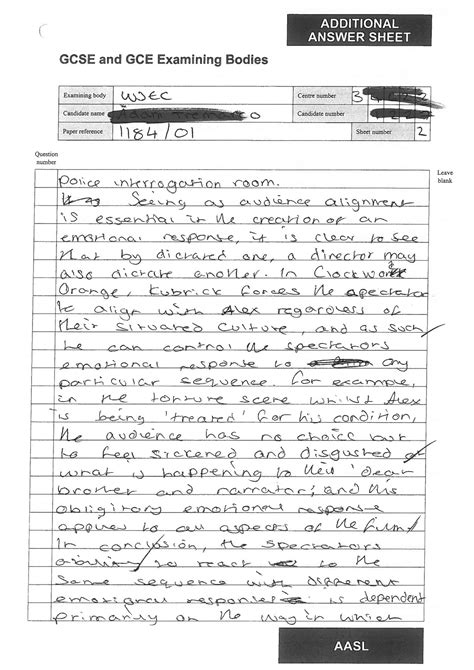 ADDITIONAL
ANSWER SHEET
GCSE and GCE Examining Bodies
Examining body WJEC Centre number 3
Candidate name Candidate number
Paper reference 1184/01 Sheet number 2
Question
number
Leave
blank
Police interrogation room.
Seeing as audience alignment
is essential in the creation of an
emotional response, it is clear to see
that by dictated one, a director may
also dictate another. In Clockwork
Orange, Kubrick forces the spectator
to align with Alex regardless of
their situated culture, and as such
he can control the spectators
emotional response to any
particular sequence. For example,
in the torture scene whilst Alex
is being 'treated' for his condition,
the audience has no choice but
to feel sickened and disgusted of
what is happening to their 'dear
brother and narrator', and this
obligitory emotional response
applies to all aspects of the film.
In conclusion, the spectators
ability to react to the
same sequence with different
emotional responses is dependent
primarily on the way in which
AASL